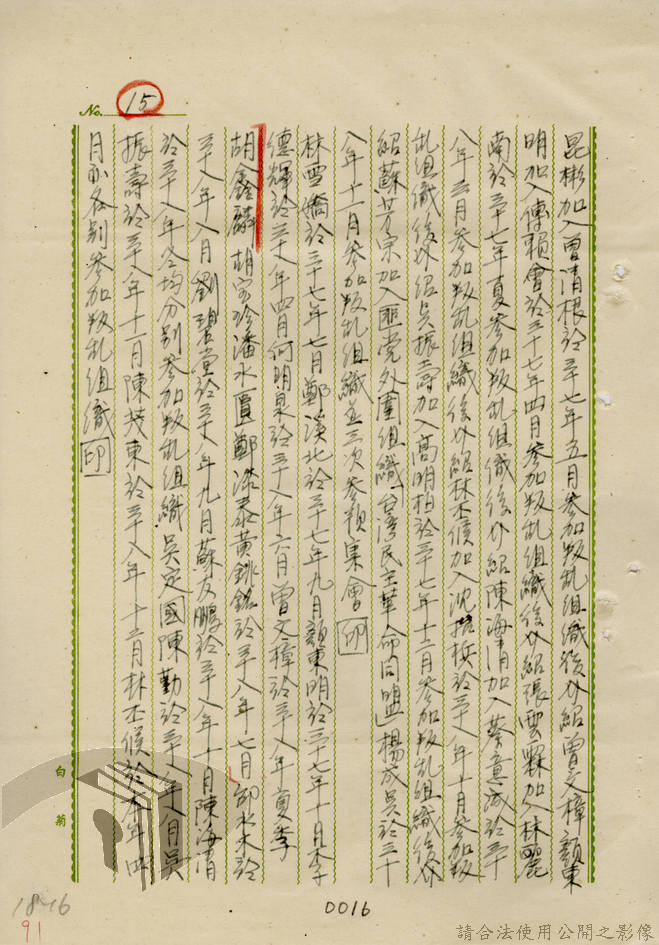 No. 15
昆彬加入曾清根於三十七年五月參加叛乱組織後介紹曾文樟顏東
明加入傅賴會於三十七年四月參加叛乱組織後介紹張雲霖加入林麗
南於三十七年夏參加叛乱組織後介紹陳海清加入蔡意誠於三十
八年三月參加叛乱組織後介紹林丕候加入沈於三十八年十月參加叛
乱組織後介紹吳振壽加入高明柏於三十七年十二月參加叛乱組織後介
紹蘇芳宗加入匪党外圍組織「台湾民主革命同盟」楊成吳於三十
八年十一月參加叛乱組織並三次參預集會印
林雪嬌於三十七年七月鄭溪北於三十七年九月顏東明於三十七年十月李
德輝於三十八年四月何明泉於三十八年六月曾文樟於三十八年夏季
胡鑫麟胡宝珍潘水匡鄭浩泰黃銚銘於三十八年七月邱水木於
三十八年八月劉碧堂於三十八年九月蘇友鵬於三十八年十月陳海清
於三十八年冬均分別參加叛乱組織吳定國陳勤於三十八年月吳
振壽於三十八年十一月陳茂東於三十八年十二月林丕候於本年四
月亦各別參加叛乱組織印
白菊
18-16
91
0016
請合法使用公開之影像